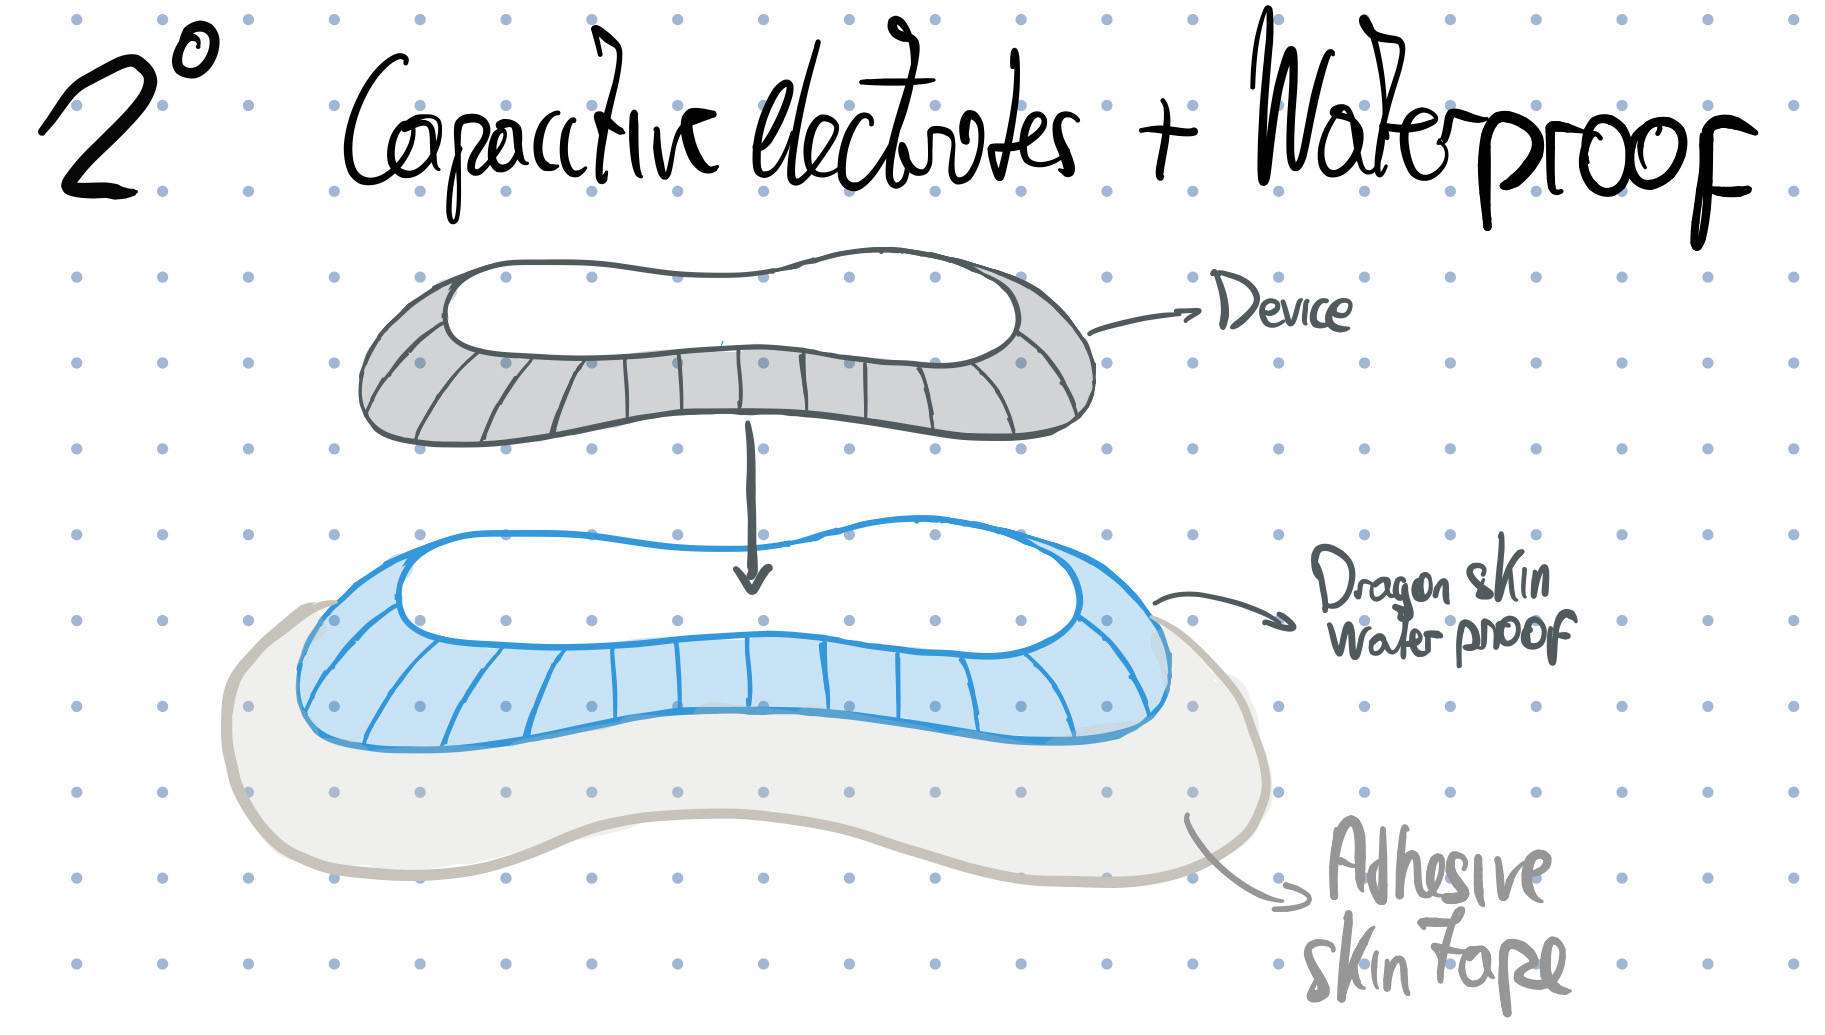 2° Capacitive electrotes + Waterproof
Device
Dragon skin
waterproof
Adhesive
skin tape